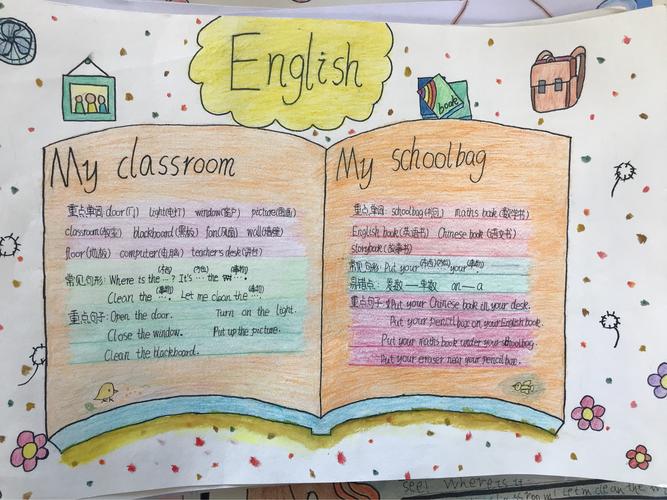 English
book
My classroom
重点单词: door(门) light(电灯) window(窗户) picture(图画)
classroom(教室) blackboard(黑板) fan(风扇) wall(墙壁)
floor(地板) computer(电脑) teacher's desk(讲台)
常见句形: Where is the …? It's … the …
Clean the …. Let me clean the ….
重点句子: Open the door. Turn on the light.
Close the window. Put up the picture.
Clean the blackboard.
My schoolbag
重点单词: schoolbag(书包) maths book(数学书)
English book(英语书) Chinese book(语文书)
storybook(故事书)
常见句形: Put your … your ….
易错点: 复数——单数 an——a
重点句子: Put your Chinese book in your desk.
Put your pencil box on your English book.
Put your maths book under your schoolbag.
Put your eraser near your pencil box.